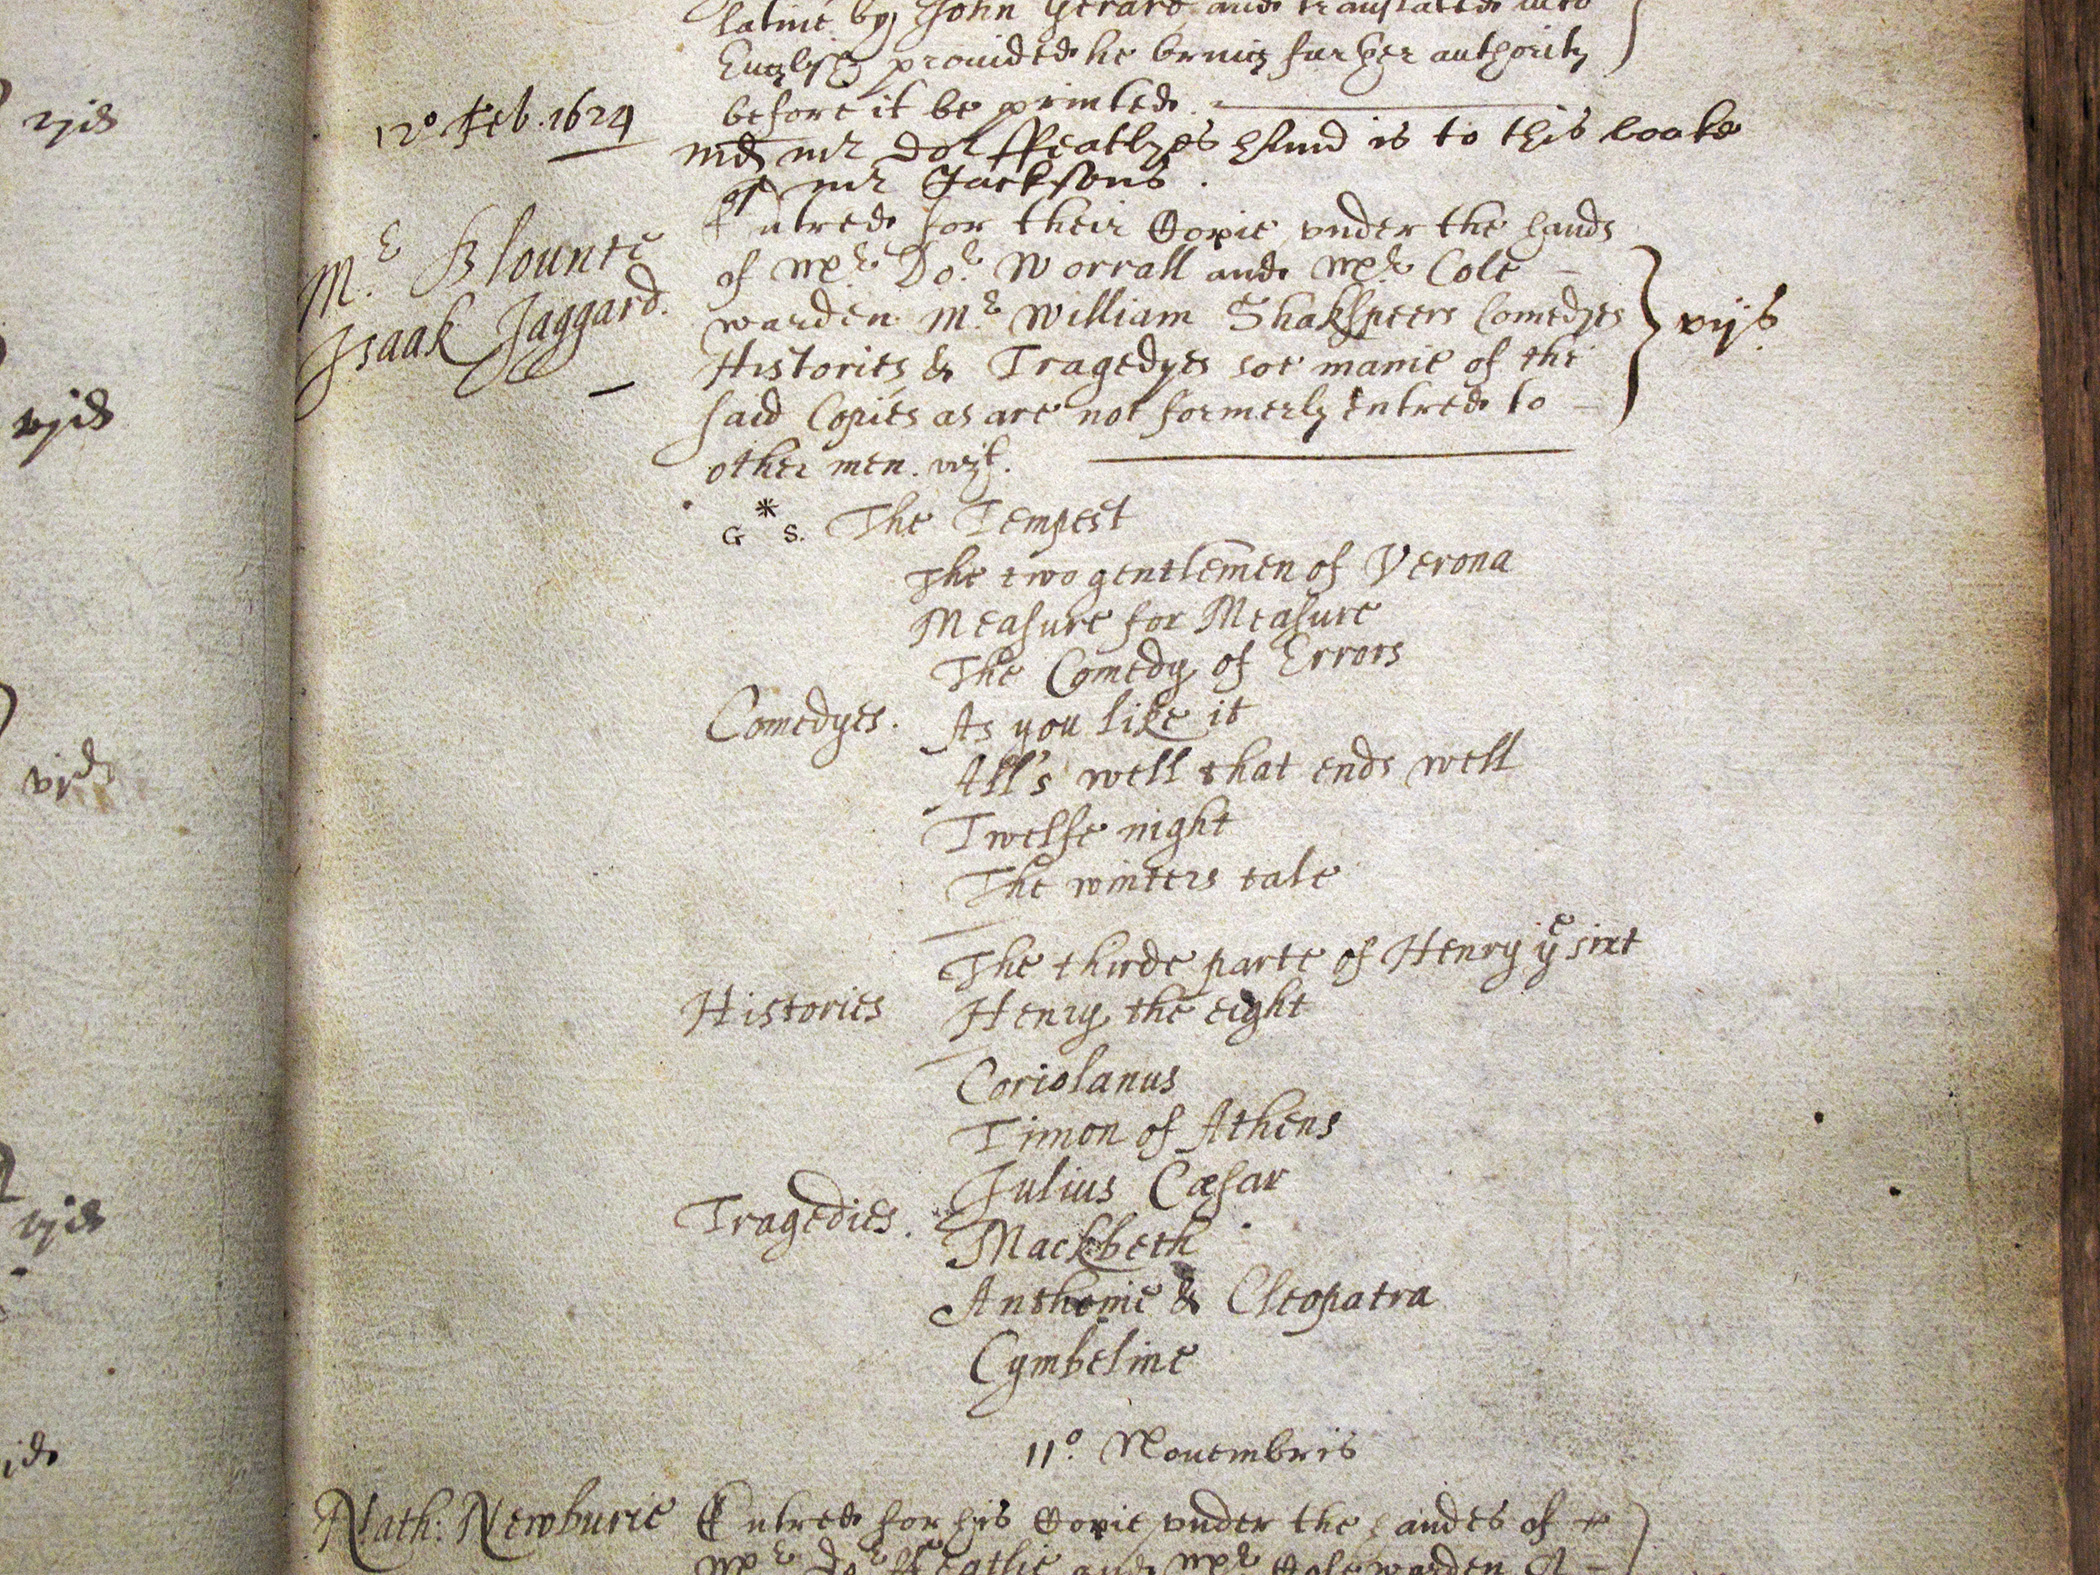 latine by John Gerard and translated into
English prouided he bring further authority
before it be printed.
vjd
12º Feb. 1624
md mr Dor ffeatlyes hand is to this booke
of mr Jacksons.
Mr. Blounte
Isaak Jaggard.
Entred for their Copie vnder the hands
of Mr. Dor. Worrall and Mr. Cole
warden Mr. William Shakspeers Comedyes
Histories & Tragedyes soe manie of the
said Copies as are not formerly entred to
other men. vizt.
vijs
vjd
G * S. The Tempest
The two gentlemen of Verona
Measure for Measure
The Comedy of Errors
Comedyes. As you like it
All's well that ends well
vjd
Twelfe night
The winters tale
The thirde parte of Henry ye sixt
Histories Henry the eight
Coriolanus
Timon of Athens
Julius Cæsar
Tragedies.
vjd
Mackbeth
Anthonie & Cleopatra
Cymbeline
11º. Nouembris
Nath: Newburie Entred for his Copie vnder the handes of
Mr. Dor. ffeatlie and Mr. Cole warden A